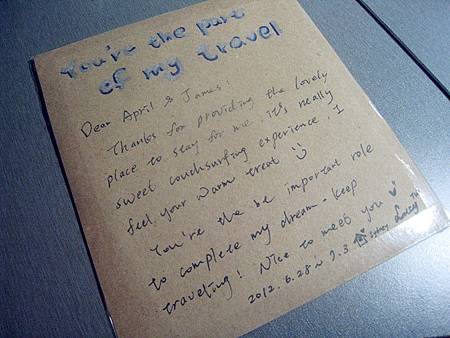 You're the part
of my travel
Dear April & James!
Thanks for providing the lovely
place to stay for me. it's really
sweet couchsurfing experience. I
feel your warm treat
You're the be important role
to complete my dream. keep
traveling! Nice to meet you
2012. 6.28 ~ 7.3 Sydney